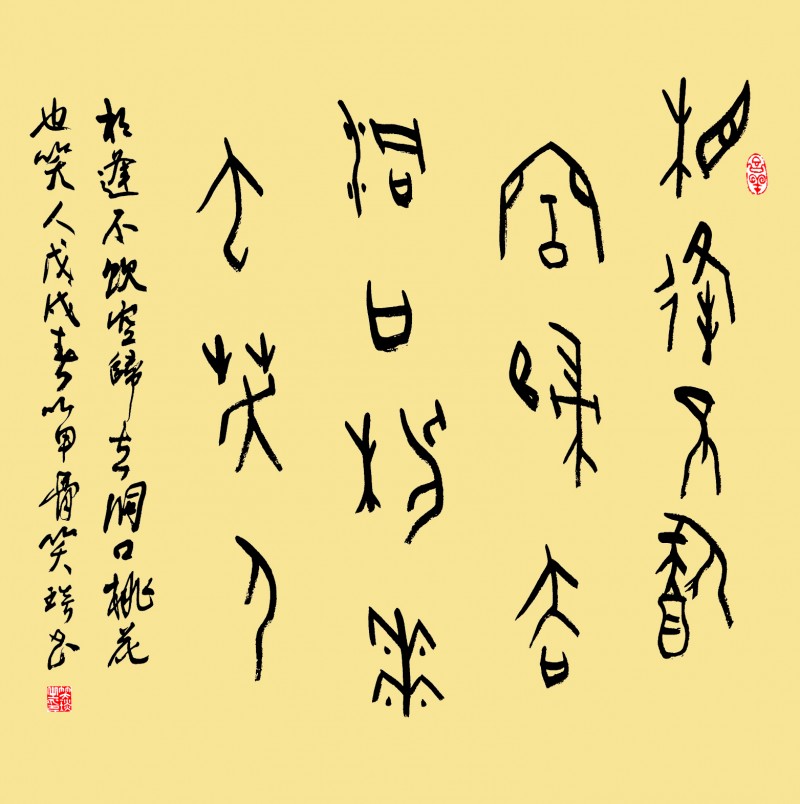 相逢不飲
空歸去
洞口桃花
也笑人
相逢不飲空歸去洞口桃花
也笑人戊戌春以甲骨笑琰書